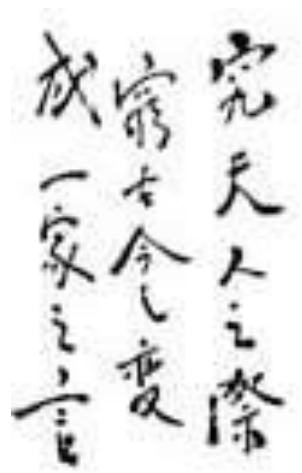 究天人之際
窮古今之変
成一家之言